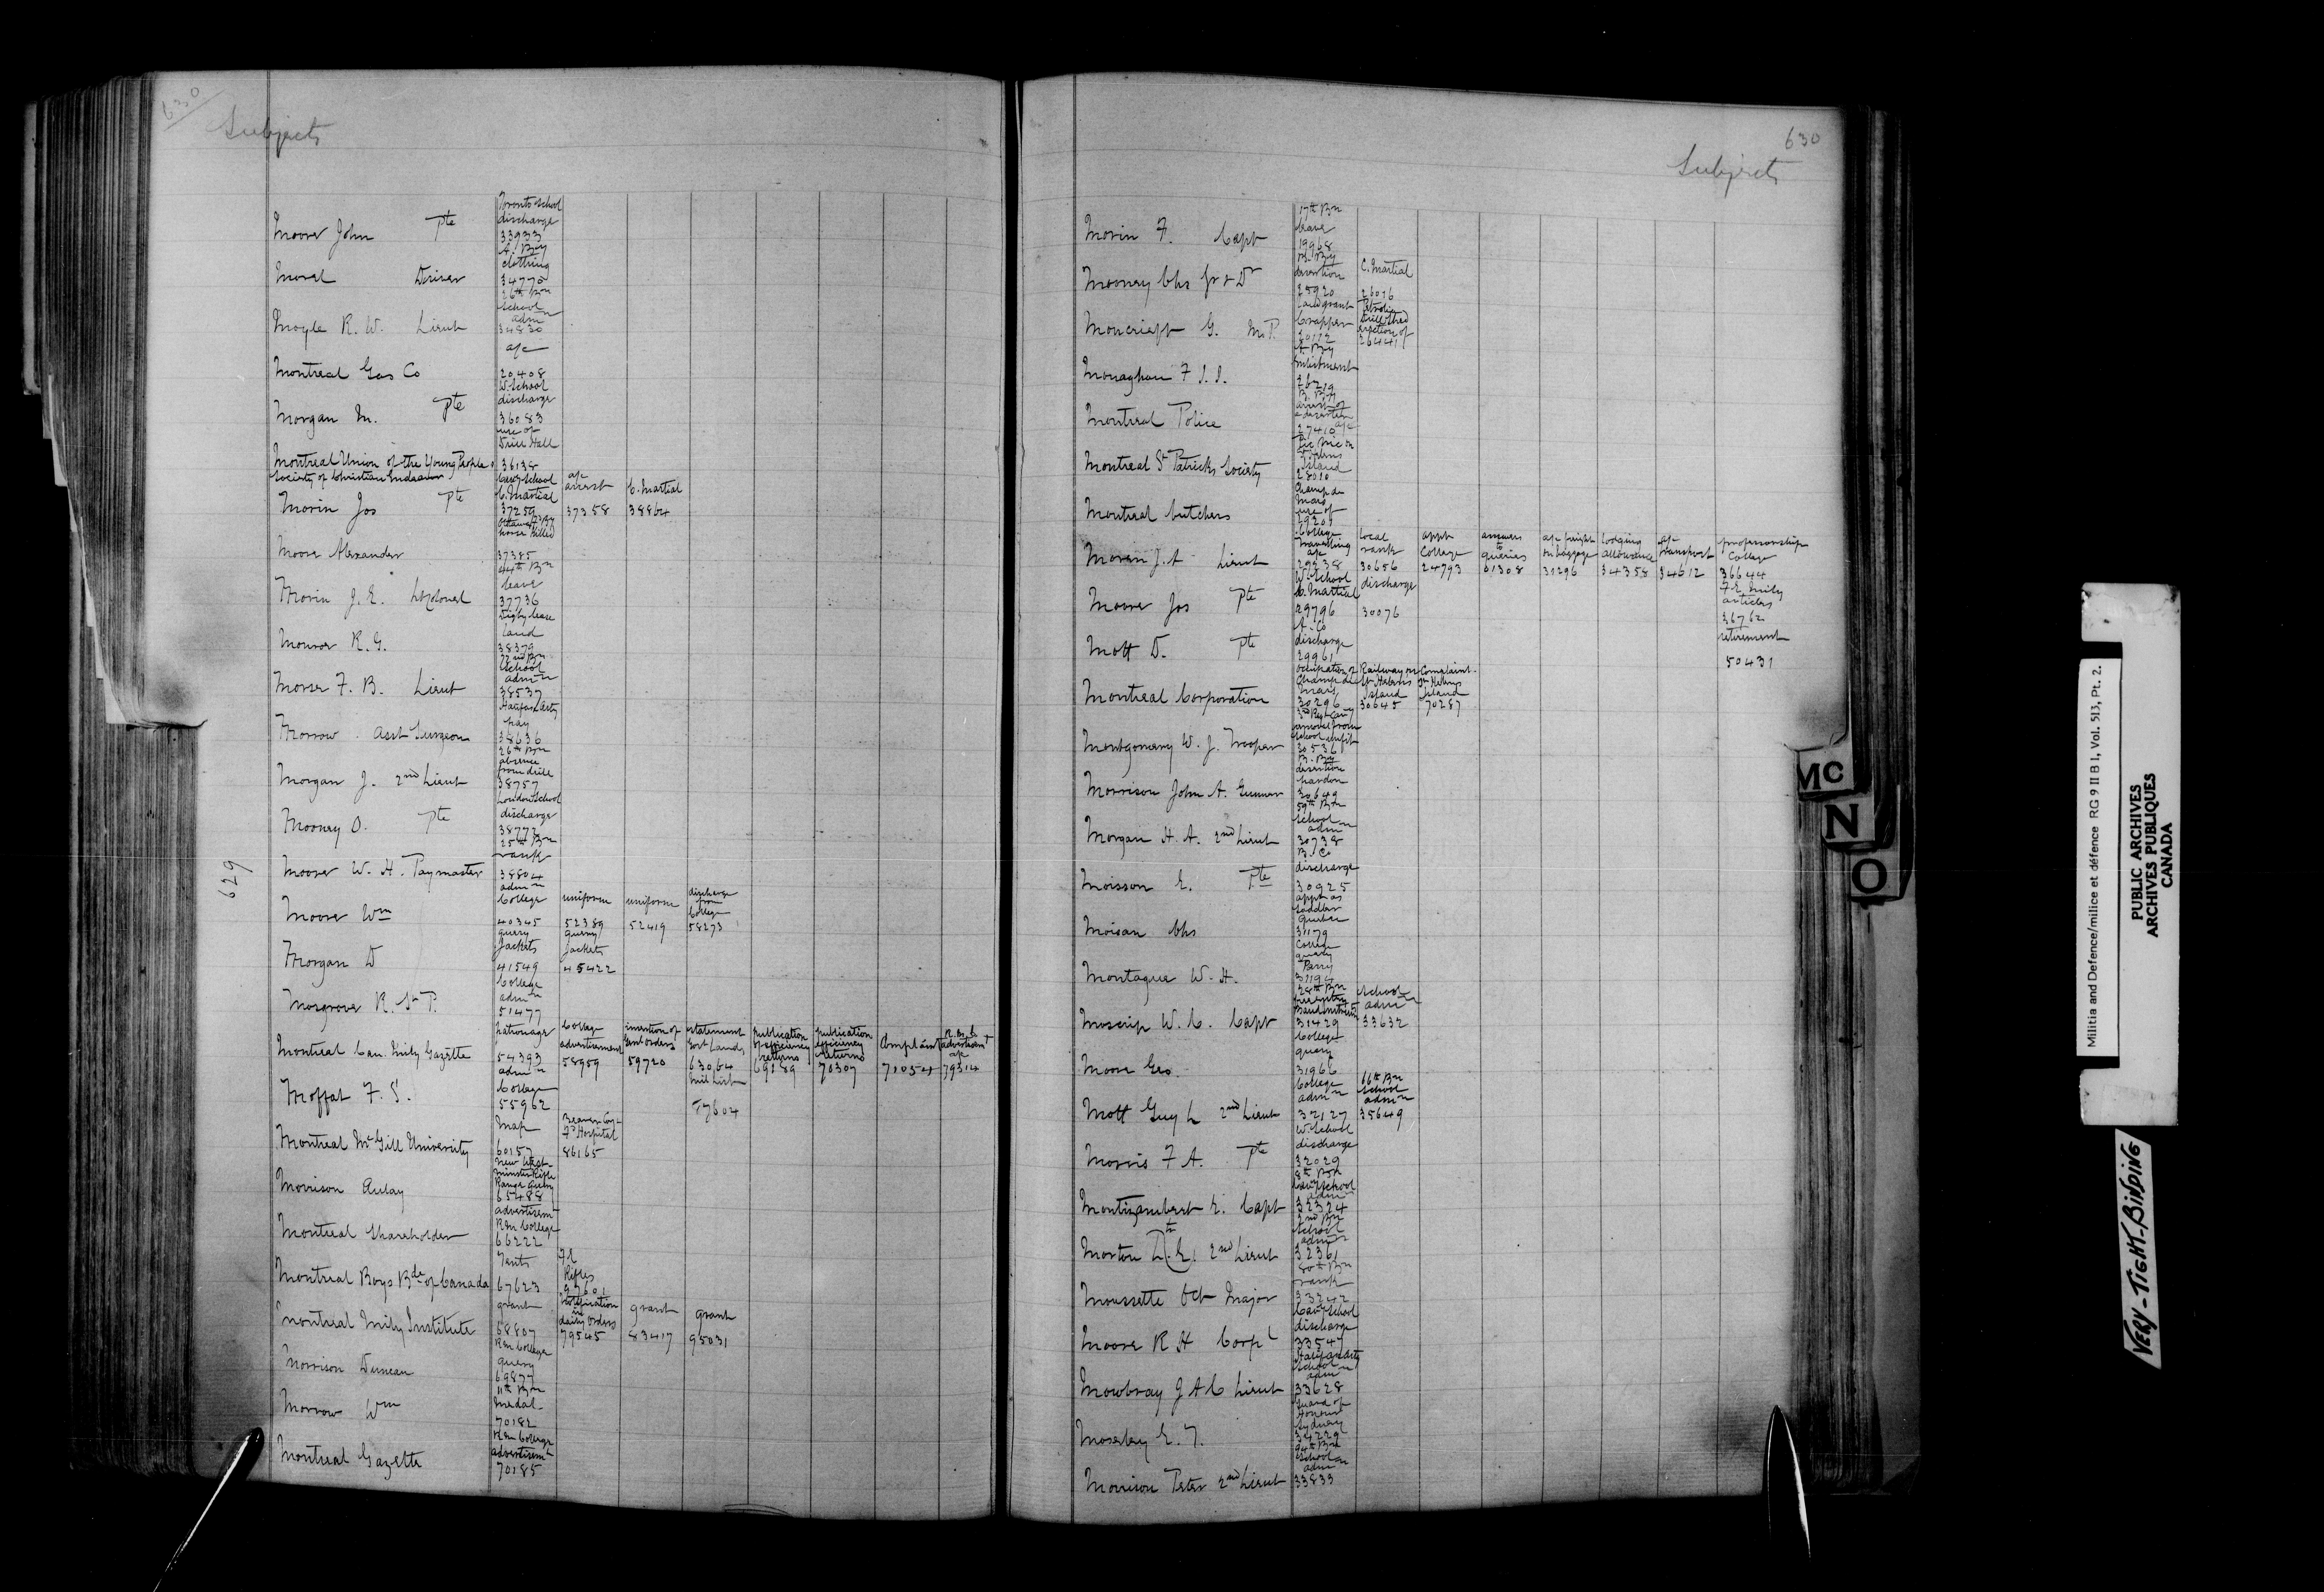 630
Subjects
Toronto School
discharge
Moore John Pte 33933
A. By
clothing
Morel Driver 34770
26th Bn
School
admn
Moyle R. W. Lieut 34830
a/c
Montreal Gas Co 20408
W. School
discharge
Morgan M. Pte 36083
use of
Drill Hall
Montreal Union of the Young Peoples 36138
Society of Christian Endeavor
Cavy School
C. Martial a/c arrest C. Martial
Morin Jos Pte 37259 37358 38864
Ottawa By
horse killed
Moore Alexander 37385
44th Bn
leave
Morin J. E. Lt Colonel 37736
Digby lease
land
Monroe R. G. 38379
72nd Bn
School
admn
Morse F. B. Lieut 38537
Halifax Arty
pay
Morrow Asst Surgeon 38636
26th Bn
absence
from drill
Morgan J. 2nd Lieut 38757
London School
discharge
Mooney O. Pte 38772
25th Bn
rank
Moore W. H. Paymaster 38804
admn
College uniform uniform discharge from College
Moore Wm 40345 52389 52419 58273
query query
Jackets Jackets
Morgan D 41549 45422
College
admn
Mosgrove R. St P. 51477
patronage College advertisement insertion of Genl orders statement Govt Lands publication of efficiency returns publication efficiency returns Complaint R.M.C. advertismt a/c
Montreal Can. Mily Gazette 54393 58959 59720 63064 69189 70307 71054 79314
Mil List
77604
admn
College
Moffat F. S. 55962
Map
Hospital
Montreal McGill University 60157 86165
New West-
minster Rifle
Range
Morrison Aulay 65488
advertisemt
RM College
Montreal Shareholder 66222
Tents Rifles
Montreal Boys Bde of Canada 67623 97601
grant Notification in daily orders grant grant
Montreal Mily Institute 68807 79545 83417 95031
RM College
query
Morrison Duncan 69877
11th Bn
Medal
Morrow Wm 70182
RM College
advertisemt
Montreal Gazette 70185
629
630
Subjects
17th Bn
leave
Morin F. Capt 19968
B. By
desertion C. Martial
Mooney Chs Gr & Dr 25920 26016
land grant Petrolia Drill Shed erection of
Moncrieff G. M.P. 20112 26441
A By
enlistment
Monaghan F. J. S. 26219
B. By
arrest of
deserter a/c
Montreal Police 27410
Pic Nic on
St Helens
Island
Montreal St Patricks Society 28010
Champ de
Mars
use of
Montreal butchers 29201
College
travelling a/c local rank appt College answers to queries a/c freight on baggage lodging allowance a/c transport professorship College
Morin J. A Lieut 29238 30656 24793 31308 31296 34358 34612 36644
articles
36762
retirement
50431
W. School
C. Martial discharge
Moore Jos Pte 29796 30076
A. Co
discharge
Mott D. Pte 29961
Occupation of Champ de Mars Railway on St Helens Island Complaint St Helens Island
Montreal Corporation 30296 30645 70287
removal from
School unfit
Montgomery W. J. Trooper 30536
B. By
desertion
pardon
Morrison John A. Gunner 30649
59th Bn
School
admn
Morgan H. A. 2nd Lieut 30738
B. Co
discharge
Moisson E. Pte 30925
appt as
Saddler
Quebec
Moisan Chs 31179
College
query
Perry
Montague W. H. 31194
28th Bn
School admn
Moscrip W. C. Capt 31429 33632
College
query
Moore Geo. 31966
College admn 66th Bn School admn
Mott Guy L 2nd Lieut 32127 35649
W. School
discharge
Morris F A. Pte 32029
8th Bn
Cavy School
admn
Montizambert E. Capt 32324
2nd Bn
School
admn
Morton E. 2nd Lieut 32361
80th Bn
rank
Moussette Oct Major 33242
Cavy School
discharge
Moore R H Corpl 33547
Halifax Arty
School
admn
Mowbray J A C Lieut 33628
Guard of
Honour
Sydney
Moseley E. T. 34229
94th Bn
School
admn
Morrison Peter 2nd Lieut 33833
MC
N
O
Militia and Defence/milice et défence RG 9 II B 1, Vol. 513, Pt. 2.
PUBLIC ARCHIVES
ARCHIVES PUBLIQUES
CANADA
VERY-TIGHT-BINDING